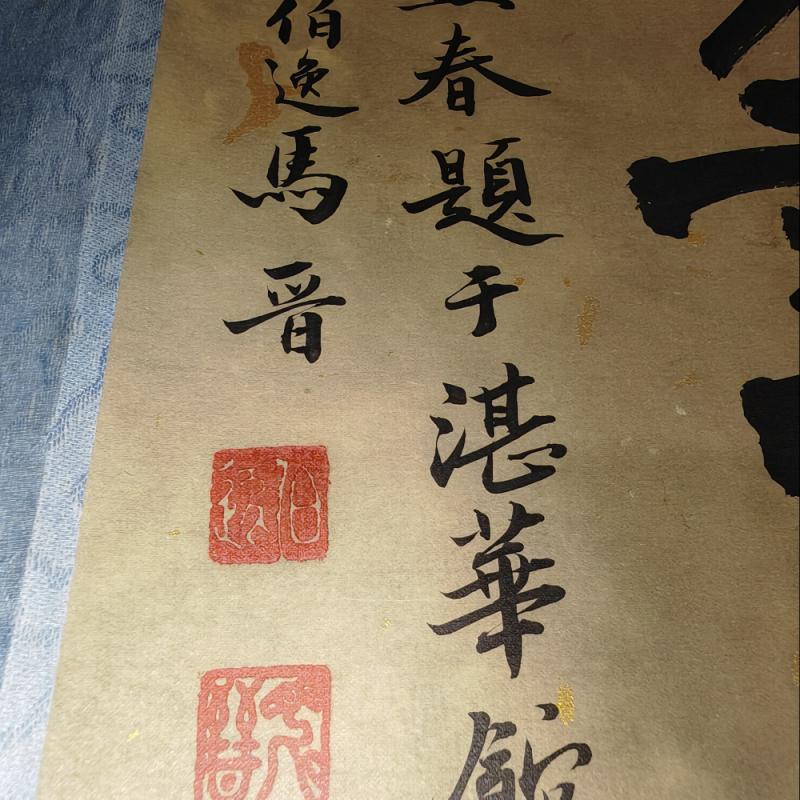 春題于湛華館
伯逸馬晋
伯逸